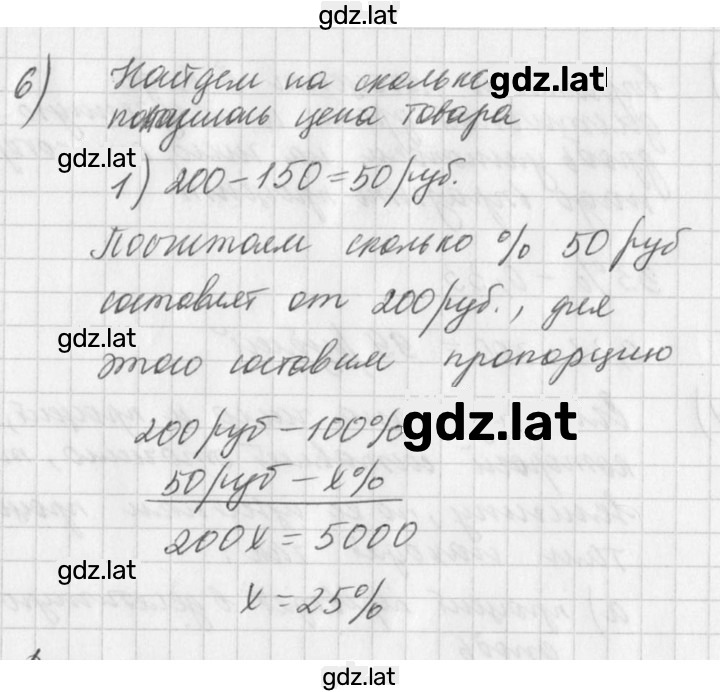 gdz.lat
б) Найдем на сколько gdz.lat
понизилась цена товара
gdz.lat
1) 200-150=50 руб.
Посчитаем сколько % 50 руб
составляет от 200 руб., для
gdz.lat
этого составим пропорцию
gdz.lat
200 руб - 100%
50 руб - x%
200x = 5000
gdz.lat
x = 25%
gdz.lat